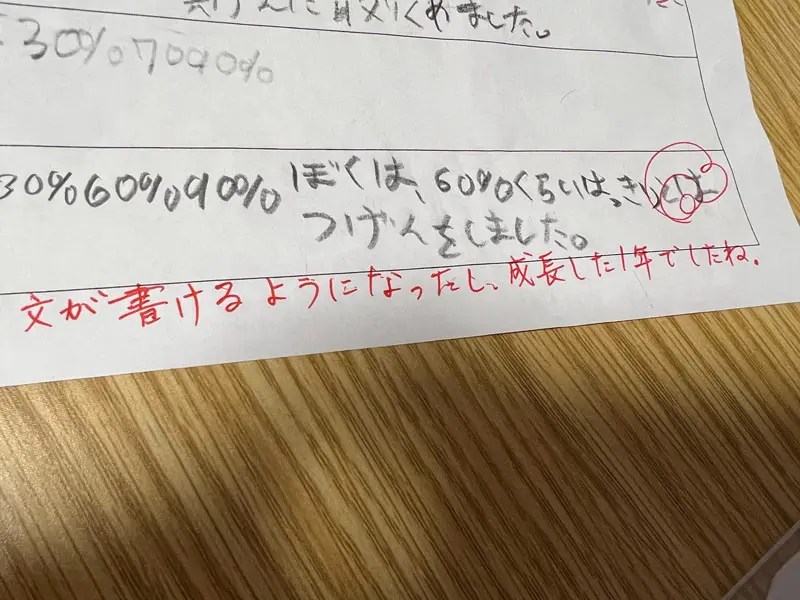 に取りくめました。
30%70%90%
30%60%90%
ぼくは、60%くらいはっきりとは
つげんをしました。
文が書けるようになったし、成長した1年でしたね。